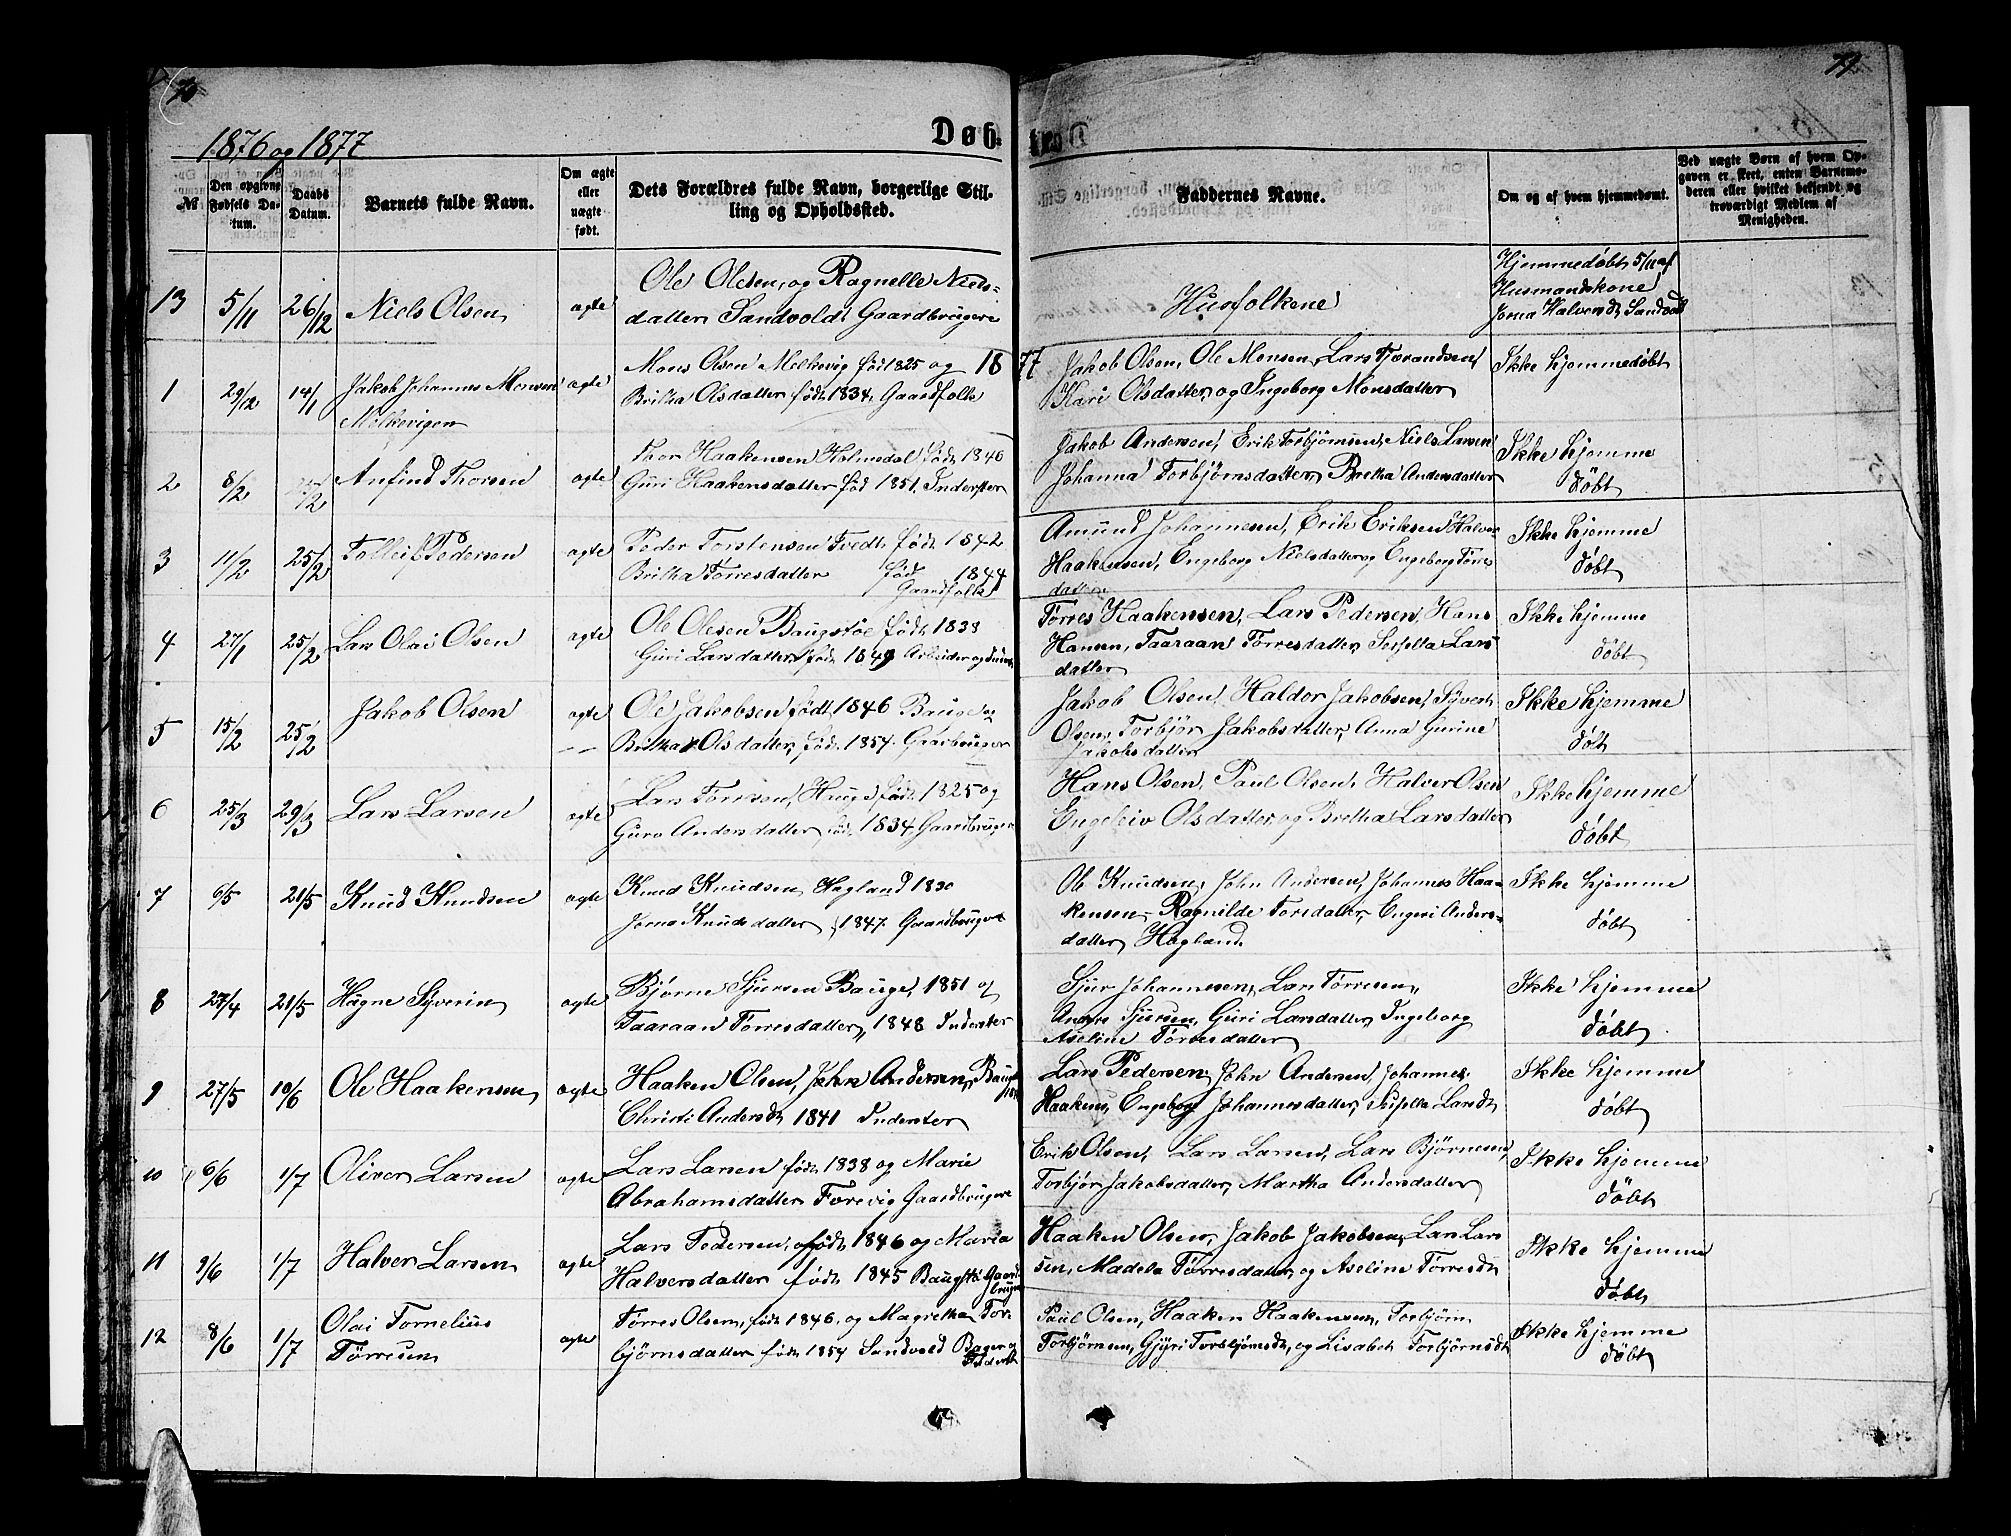 79
1876 og 1877
Døb=
№
Den opgivne Fødsels Datum.
Daabs Datum.
Barnets fulde Navn.
Om ægte eller uægte født.
Dets Forældres fulde Navn, borgerlige Stilling og Opholdssted.
Faddernes Navne.
Om og af hvem hjemmedøbt.
Ved uægte Børn af hvem Opgaven er skeet, enten Barnemoderen eller hvilket bekjendt og troværdigt Medlem af Menigheden.
13 5/11 26/12 Niels Olsen ægte
Ole Olesen, og Ragnelle Niels=
datter Sandvold Gaardbrugere
Husfolkene
Hjemmedøbt 5/11 af
Husmandskone
Halvorsdt Sandvold
1877
1 29/12 14/1 Jakob Johannes Monsen
Melkevigen
ægte
Mons Olsen Melkevig født 1825 og
Britha Olsdatter født 1834 Gaardfolk
Jakob Olsen, Ole Monsen, Lars Tjerandsen
Kari Olsdatter og Ingeborg Monsdatter
Ikke hjemmedøbt
2 8/2 Anfind Thorsen ægte
Thor Haakensen Holmedal født 1846
Guri Haakensdatter fød 1851 Inderster
Jakob Andersen, Erik Torbjørnsen, Niels Larsen
Johanna Torbjørnsdatter, Bretha Andersdatter
Ikke hjemme
døbt
3 11/2 25/2 Tolleif Pedersen ægte
Peder Torstensen Tvedt født 1842
Britha Torresdatter fød 1844
Gaardfolk
Amund Johannesen, Erik Eriksen Halvor
Haakensen, Engeborg Nielsdatter og Engeborg Tørres
datter
Ikke hjemme
døbt
4 27/1 25/2 Lars Olai Olsen ægte
Ole Olesen Baugstøe født 1838
Guri Larsdatter født 1849 Arbeider og
Tørres Haakensen, Lars Pedersen, Hans
Hansen, Taaraan Tørresdatter, Sessella Lars
datter
Ikke hjemme
døbt
5 15/2 25/2 Jakob Olsen ægte
Ole Jakobsen født 1846 Bauge og
Britha Olsdatter, født 1854 Gaardbruger
Jakob Olsen, Haldor Jakobsen, Syvert
Olsen, Torbjør Jakobsdatter, Anna Gurine
Jakobsdatter
Ikke hjemme
døbt
6 25/3 29/3 Lars Larsen ægte
Lars Tørresen, Houge født 1825 og
Guro Andersdatter født 1834 Gaardbruger
Hans Olsen, Paul Olsen, Halver Olsen
Olsdatter, og Bretha Larsdatter
Ikke hjemme
døbt
7 6/5 21/5 Knud Knudsen ægte
Knud Knudsen Hagland 1830
Jorna Knudsdatter 1847 Gaardbrugere
Ole Knudsen, John Andersen, Johannes Haa=
kensen, Ragnilde Torsdatter, Engeri Anders=
datter, Hagland
Ikke hjemme
døbt
8 27/4 21/5 Hagne Syverin ægte
Bjørne Sjursen Bauge, 1851 og
Taaraan Tørresdatter, 1848 Inderster
Sjur Johannesen, Lars Tørresen,
Anders Sjursen, Guri Larsdatter, Ingeborg
Aseline Tørresdatter
Ikke hjemme
døbt
9 27/5 10/6 Ole Haakensen ægte
Haaken Olsen, John Andersen,
Christi Andersdt 1841 Inderster
Lars Pedersen, John Andersen, Johannes
Haakens, Engeborg Johannesdatter, Sessella Larsdt
Ikke hjemme
døbt
10 6/6 1/7 Oliver Larsen ægte
Lars Larsen født 1838 og Marie
Abrahamsdatter Færevig Gaardbrugere
Erik Olsen, Lars Larsen, Lars Bjørnesen,
Torbjør Jakobsdatter, Martha Andersdatter
Ikke hjemme
døbt
11 9/6 1/7 Halver Larsen ægte
Lars Pedersen, født 1846 og Maria
Halversdatter født 1845 Baugstø Gaard
bruger
Haaken Olsen, Jakob Jakobsen, Lars Lars
sen, Madela Tørresdatter, og Aseline Tørresdt
Ikke hjemme
døbt
12 8/6 1/7 Olai Tornelius
Tørresen
ægte
Tørres Olsen, født 1846, og Magretha Tor=
bjørnsdatter født 1854 Sandvold
Paul Olsen, Haaken Haakensen, Torbjørn
Torbjørnsen, Gjyri Torbjørnsdt, og Lisabet Torbjørnsdt
Ikke hjemme
døbt